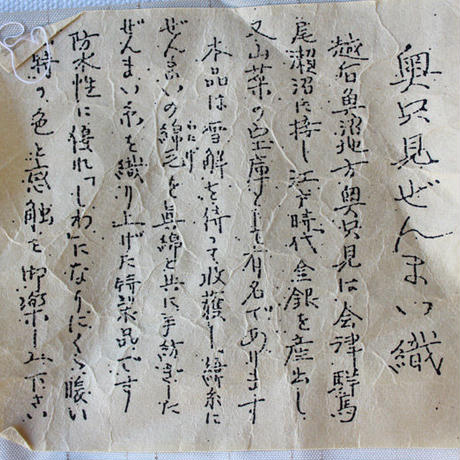 奥只見ぜんまい織
越后魚沼地方奥只見は会津群馬
尾瀬沼に接し江戸時代金銀を産出し
又山菜の宝庫として有名であります
本品は雪解を待って收獲し、絹糸に
ぜんまいの綿毛を眞綿と共に手紡ぎした
わたげ
ぜんまい糸を織り上げた特製品です
防水性に優れ「しわ」になりにくゝ暖い
特の色と感触を御楽し上下さい